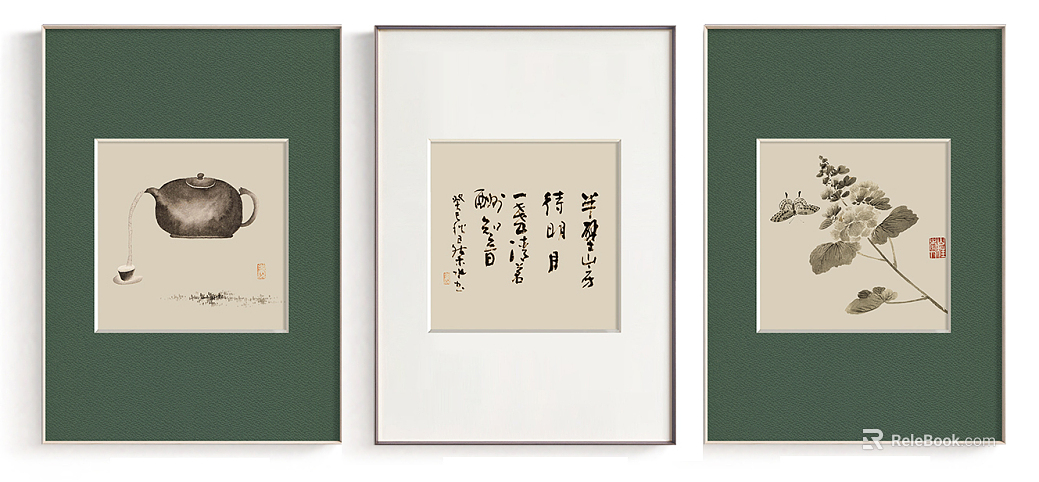 半壁山房
待明月
一盏清茗
酬知音
癸巳秋月
ReleBook.com